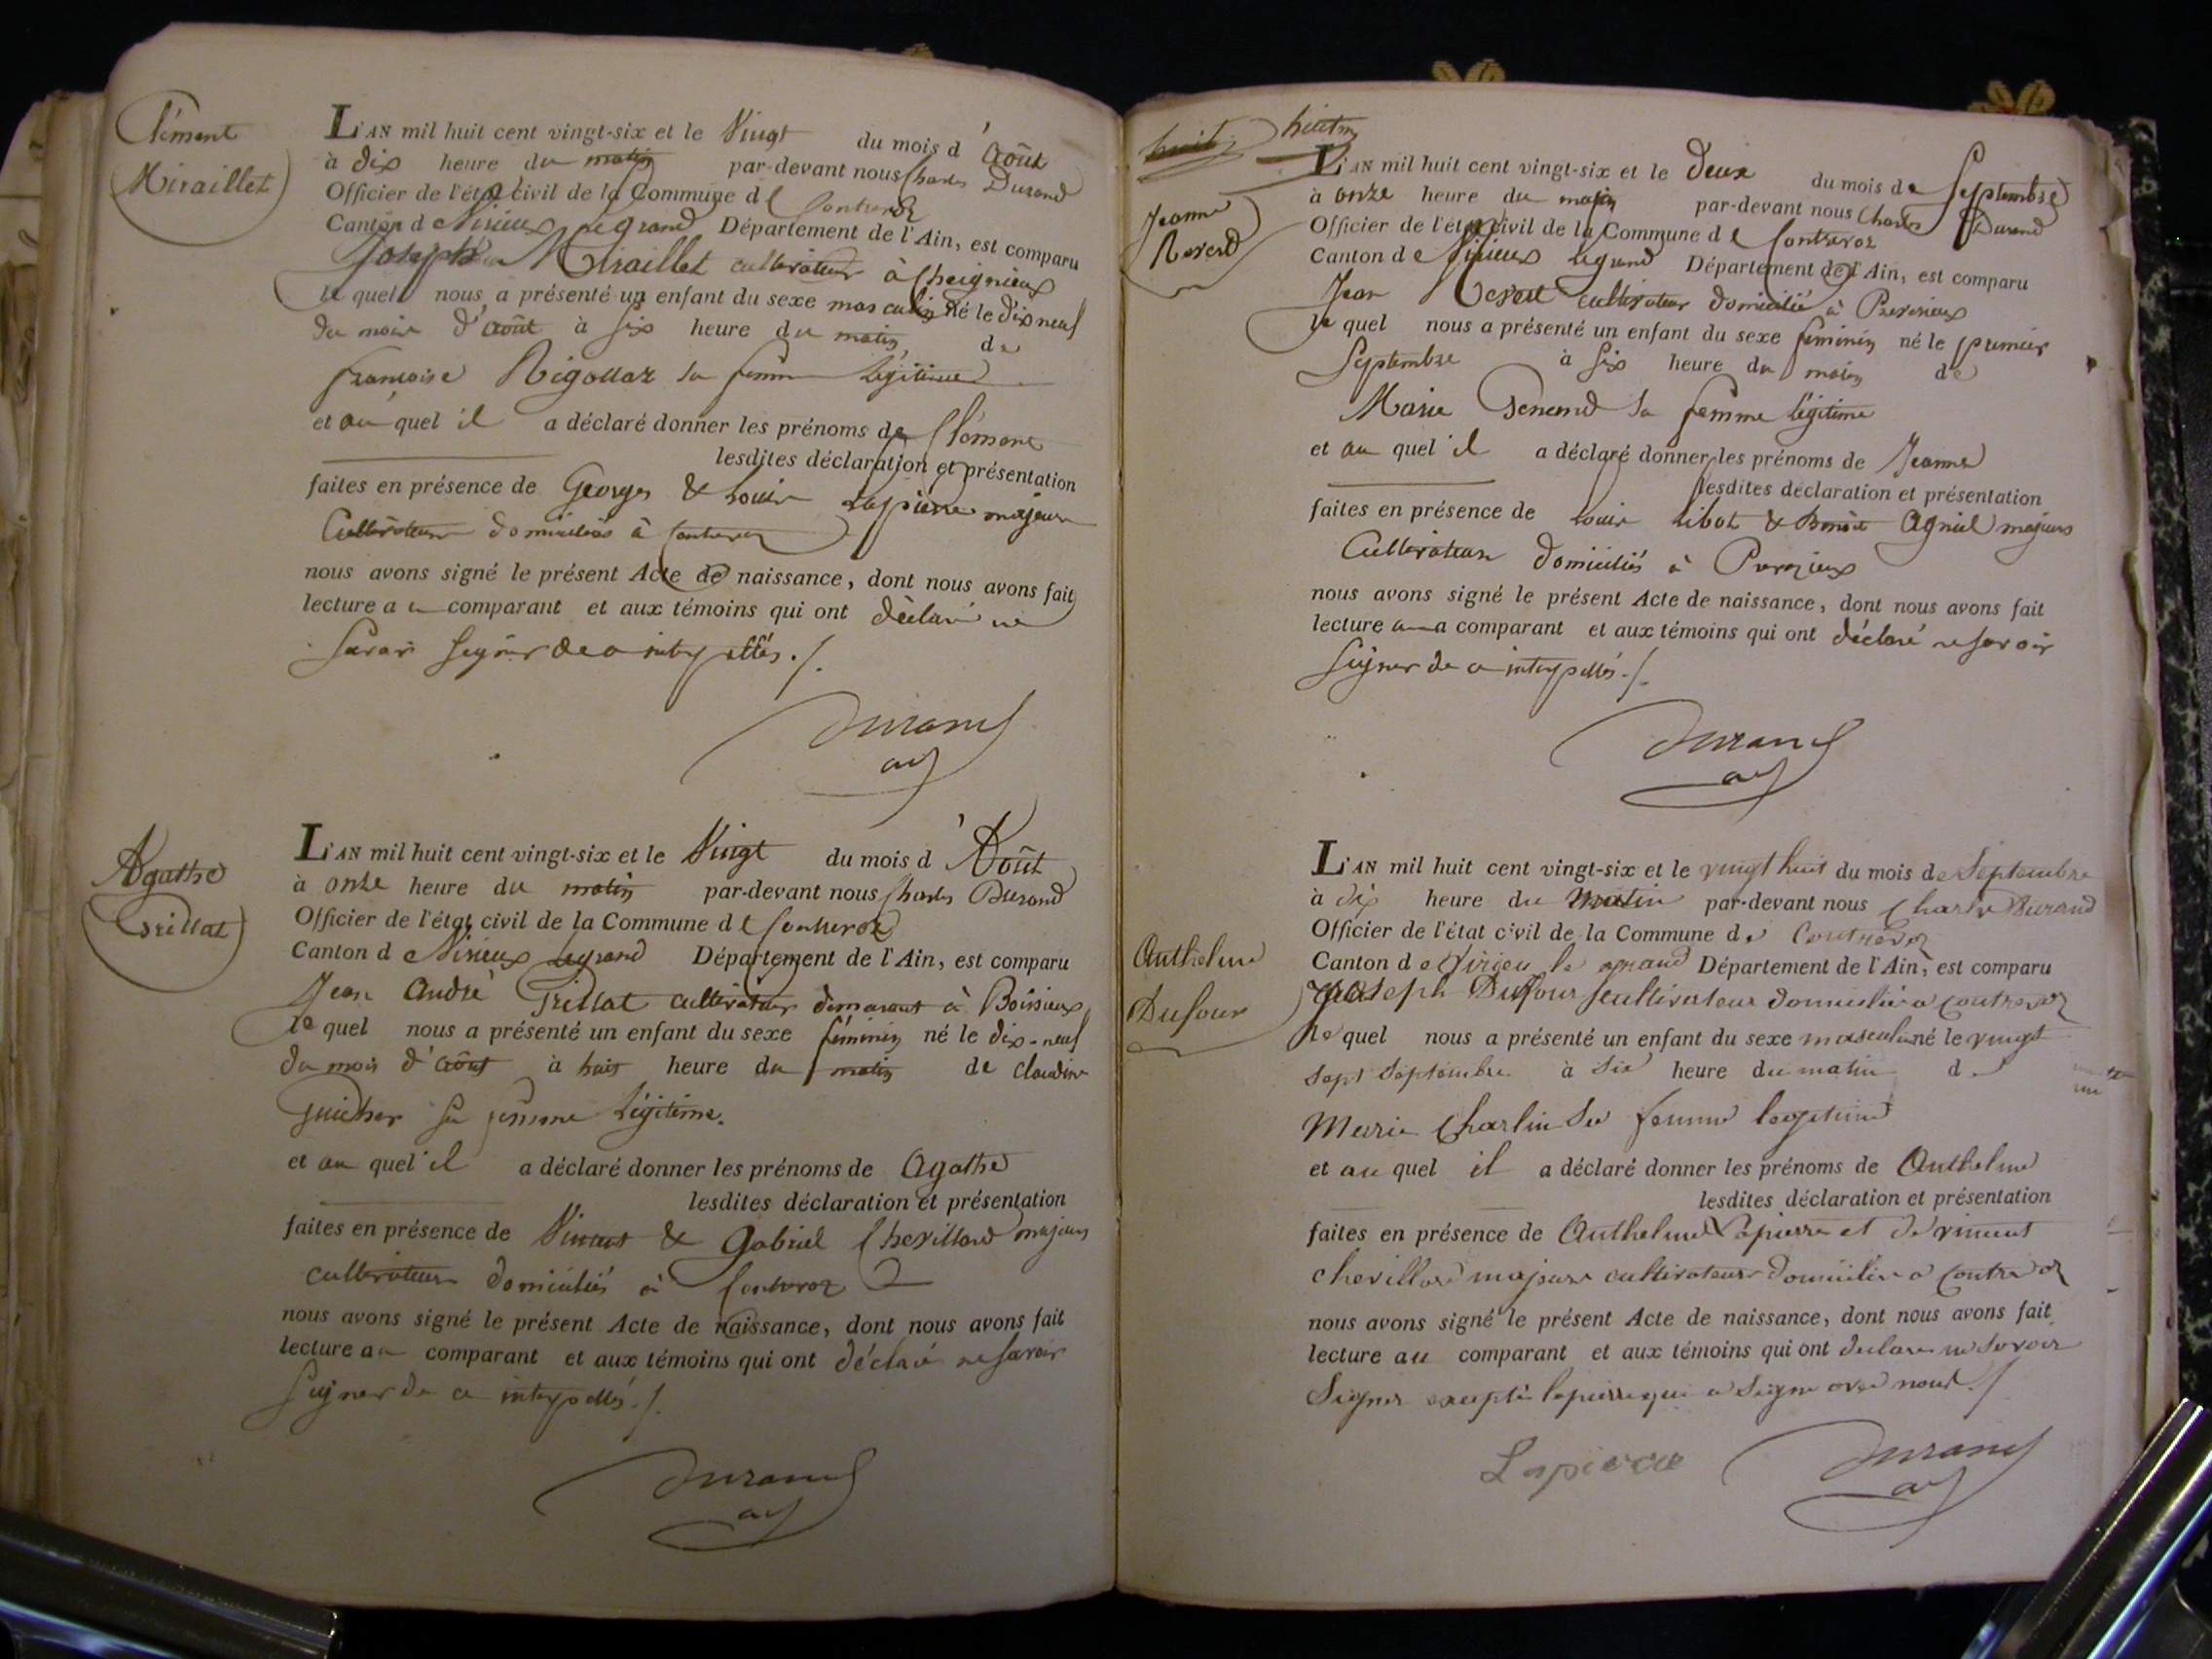 Clément
Miraillet
L'AN mil huit cent vingt-six et le Vingt du mois d'Août
à dix heure du matin par-devant nous Charles Durand
Officier de l'état civil de la Commune de Contrevoz
Canton de Virieux Legrand Département de l'Ain, est comparu
Joseph Miraillet cultivateur à Cheignieux
le quel nous a présenté un enfant du sexe masculin né le dix neuf
du mois d'août à six heure du matin de
françoise Rigollaz sa femme légitime
et au quel il a déclaré donner les prénoms de Clément
lesdites déclaration et présentation
faites en présence de Georges & Louis Lapierre majeurs
Cultivateurs domiciliés à Contrevoz
nous avons signé le présent Acte de naissance, dont nous avons fait
lecture au comparant et aux témoins qui ont déclaré ne
savoir signer de ce interpellés ./.
Durand
Agathe
Grillat
L'AN mil huit cent vingt-six et le Vingt du mois d'Août
à onze heure du matin par-devant nous Charles Durand
Officier de l'état civil de la Commune de Contrevoz
Canton de Virieux Legrand Département de l'Ain, est comparu
Jean André Grillat cultivateur demeurant à Boissieux
le quel nous a présenté un enfant du sexe féminin né le dix-neuf
du mois d'août à huit heure du matin de claudine
sa femme légitime.
et au quel il a déclaré donner les prénoms de Agathe
lesdites déclaration et présentation
faites en présence de Vincent & Gabriel Chevillard majeurs
cultivateurs domiciliés à Contrevoz
nous avons signé le présent Acte de naissance, dont nous avons fait
lecture au comparant et aux témoins qui ont déclaré ne savoir
signer de ce interpellés ./.
Durand
huit huitm
Jeanne
Reverd
L'AN mil huit cent vingt-six et le Deux du mois de Septembre
à onze heure du matin par-devant nous Charles Durand
Officier de l'état civil de la Commune de Contrevoz
Canton de Virieux Legrand Département de l'Ain, est comparu
Jean cultivateur domicilié à
le quel nous a présenté un enfant du sexe féminin né le premier
Septembre à six heure du matin de
Marie sa femme légitime
et au quel il a déclaré donner les prénoms de Jeanne
lesdites déclaration et présentation
faites en présence de Louis Libot & Benoit Agniel majeurs
Cultivateurs domiciliés à
nous avons signé le présent Acte de naissance, dont nous avons fait
lecture au comparant et aux témoins qui ont déclaré ne savoir
signer de ce interpellés ./.
Durand
Anthelme
Dufour
L'AN mil huit cent vingt-six et le vingt huit du mois de Septembre
à dix heure du matin par-devant nous Charle Durand
Officier de l'état civil de la Commune de Contrevoz
Canton de Virieu le grand Département de l'Ain, est comparu
joseph Dufour cultivateur domicilié a contrevoz
le quel nous a présenté un enfant du sexe masculin né le vingt
sept Septembre à six heure du matin de
Marie Charlin sa femme legitime
et au quel il a déclaré donner les prénoms de Anthelme
lesdites déclaration et présentation
faites en présence de Anthelme Lapierre et de vincent
chevillard majeurs cultivateurs domicilié a contrevoz
nous avons signé le présent Acte de naissance, dont nous avons fait
lecture au comparant et aux témoins qui ont declaré ne savoir
Signer excepté lapierre qui a signé avec nous ./.
Lapierre Durand